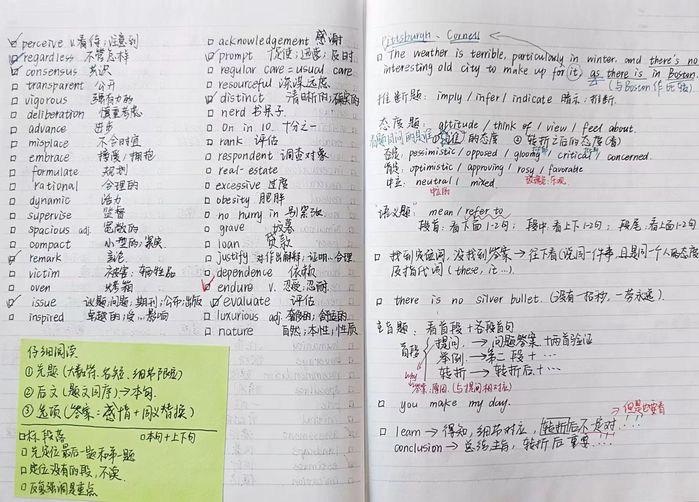 perceive v.看待;注意到
regardless 不管怎样
consensus 共识
transparent 公开
vigorous 强有力的
deliberation 慎重考虑
advance 进步
misplace 不合时宜
embrace 接受/拥抱
formulate 规划
rational 合理的
dynamic 活力
supervise 监督
spacious adj. 宽敞的
compact 小型的/紧实
remark 言论
victim 被害;牺牲品
oven 烤箱
issue 议题,问题;期刊;公布;出版
inspired
acknowledgement 感谢
prompt 促使;迅速;及时
regular care = usual care
resourceful 深谋远虑
distinct 清晰的;确实的
nerd 书呆子
on in 10. 十分之一
rank 评估
respondent 调查对象
real-estate
excessive 过度
obesity 肥胖
no hurry in 别紧张
grave 坟墓
loan 贷款
justify 对作出解释;证明…合理
dependence 依赖
endure v. 忍受;忍耐
evaluate 评估
luxurious adj. 奢侈的;舒适的
nature 自然;本性;性质
仔细阅读
①先题(大写,名短,细节)
②后文(题文同序)→本句.
③选项(答案:感情+同义替换)
标段落 本句+上下句
先定位最后一题和第一题
定位没有的段,不读.
反复强调是重点
Pittsburgh、Corness
The weather is terrible, particulounly in winter, and there's no
interesting old city to make up for it, as there is in Boston.
(与Boston作比较)
推断题: imply / infer / indicate 暗示;推断.
态度题: attitude / think of / view / feel about.
看题目问的是谁的态度 ②转折之后的态度(看)
pessimistic / opposed / gloomy / critical / concerned.
optimistic / approving / rosy / favorable
中立: neutral / mixed.
中立的
"语义题" mean / refer to
段首:看下面1-2句; 段中:看上下1-2句; 段尾:看上面1-2句
找到定位词,没找到答案→往下看(说同一件事,且是同一个人的态度
及指代词(these, it…).
there is no silver bullet. (没有一招妙,一劳永逸).
主旨题: 看首段+各段首句
首段 提问.→问题答案+两首验证
举例.→第二段+…
转折→转折后+…
why
答案:原因(与提问相对应)
you make my day.
但是也要看
learn→得知,细节对应,转折后不是对!!!
conclusion→总结主旨,转折后重要!!!